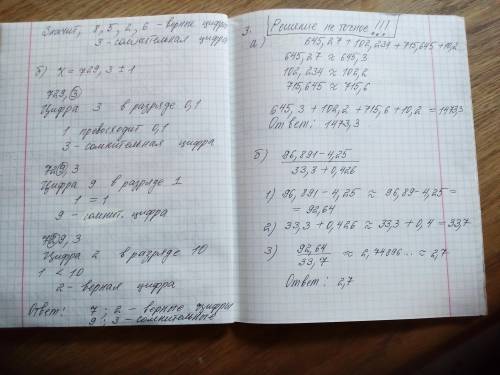 Значит, 8, 5, 2, 6 - верные цифры
3 - сомнительная цифра
б) x = 729, 3 ± 1
729,3
Цифра 3 в разряде 0,1
1 превосходит 0,1
3 - сомнительная цифра
729,3
Цифра 9 в разряде 1
1 = 1
9 - сомнит. цифра
729,3
Цифра 2 в разряде 10
1 < 10
2 - верная цифра
Ответ: 7, 2 - верные цифры
9; 3 - сомнительные
3. Решение не точное !!!
а) 645,27 + 102,234 + 715,645 + 10,2
645,27 ≈ 645,3
102,234 ≈ 102,2
715,645 ≈ 715,6
645,3 + 102,2 + 715,6 + 10,2 = 1473,3
Ответ: 1473,3
б) 96,891 - 4,25
33,3 + 0,426
1) 96,891 - 4,25 ≈ 96,89 - 4,25 =
= 92,64
2) 33,3 + 0,426 ≈ 33,3 + 0,4 = 33,7
3) 92,64 / 33,7 ≈ 2,74896... ≈ 2,7
Ответ: 2,7